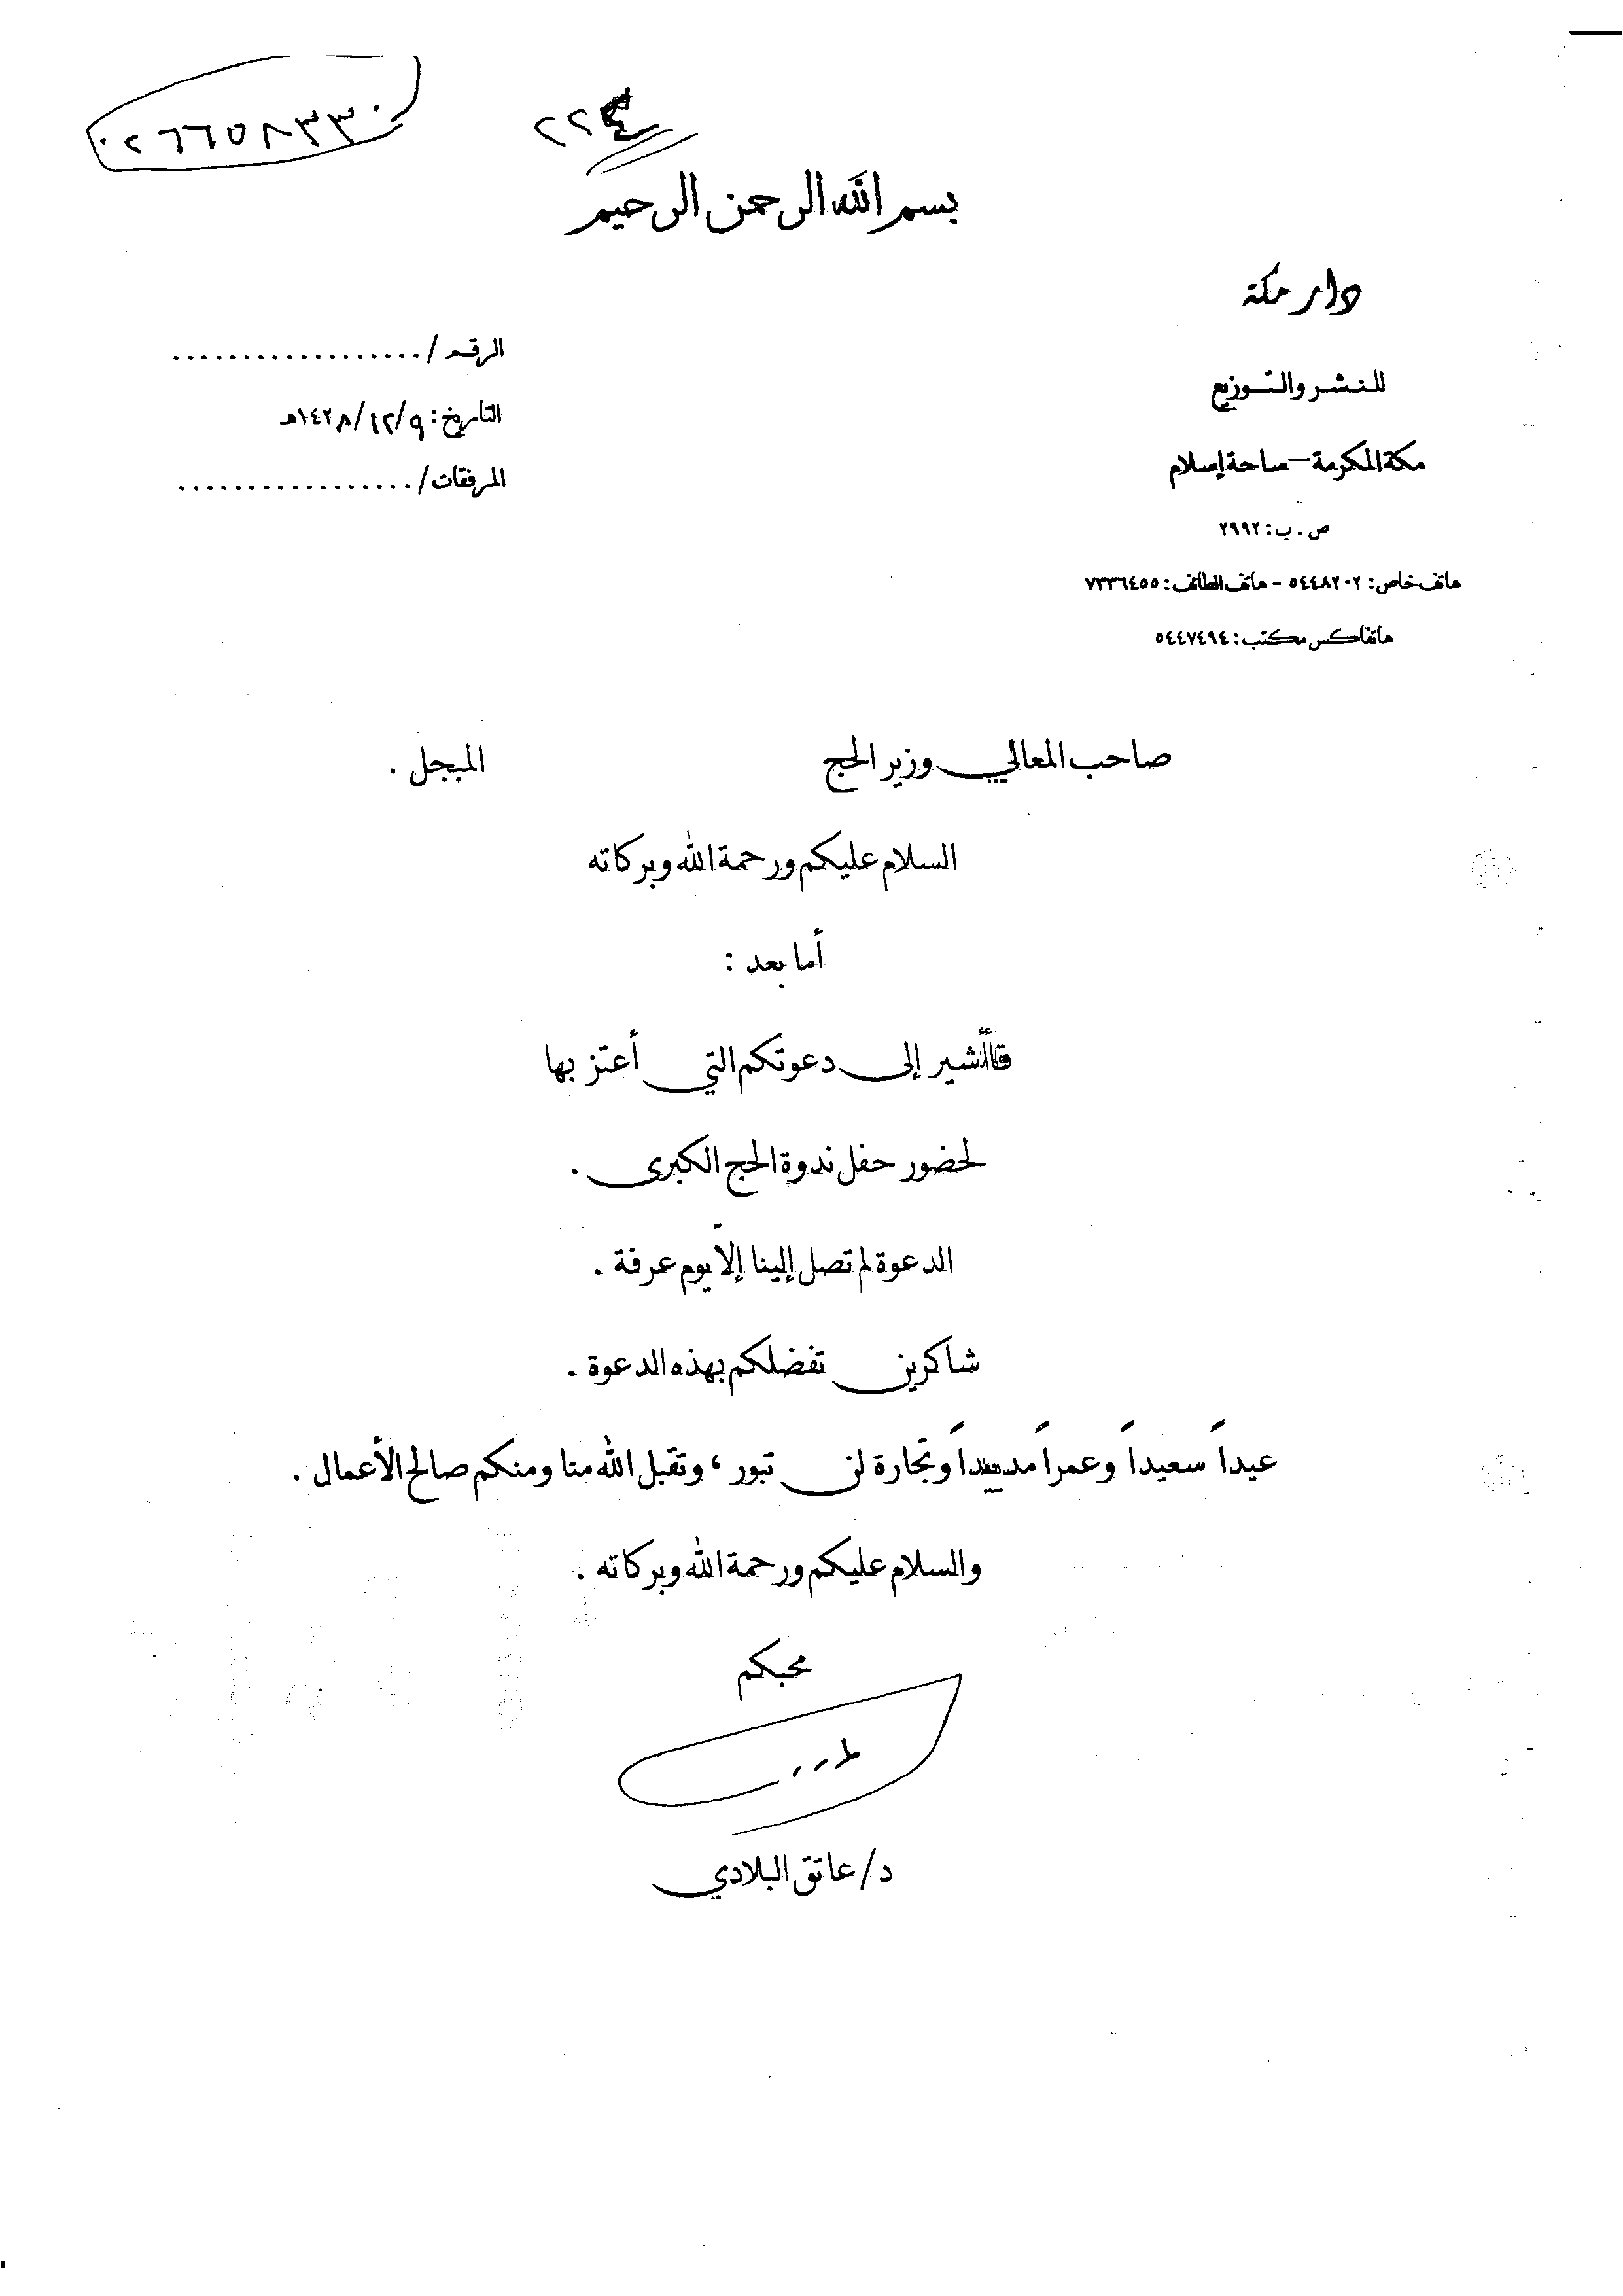 ٠٢٦٦٥٨٣٣٠
٢٢٤
بسم الله الرحمن الرحيم
دار مكة
للنشر والتوزيع
مكة المكرمة - ساحة إسلام
ص . ب : ٢٩٩٢
هاتف خاص : ٥٤٤٨٢٠٢ - هاتف الطائف : ٧٣٣٦٤٥٥
هاتفاكس مكتب : ٥٤٤٧٤٩٤
الرقم / ..................
التاريخ : ١٤٢٨/١٢/٩هـ
المرفقات / .................
صاحب المعالي وزير الحج المبجل .
السلام عليكم ورحمة الله وبركاته
أما بعد :
فأشير إلى دعوتكم التي أعتز بها
لحضور حفل ندوة الحج الكبرى .
الدعوة لم تصل إلينا إلا يوم عرفة .
شاكرين تفضلكم بهذه الدعوة .
عيداً سعيداً وعمراً مديداً وتجارة لن تبور ، وتقبل الله منا ومنكم صالح الأعمال .
والسلام عليكم ورحمة الله وبركاته .
محبكم
د/ عاتق البلادي